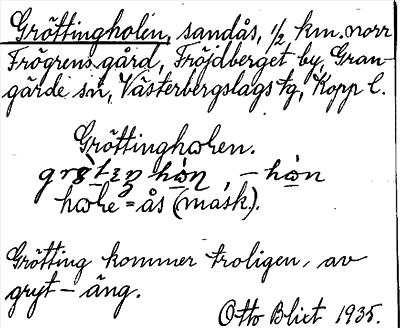 Gröttingholen, sandås, 1/2 km. norr
Frögrens gård, Fröjdberget by, Gran-
gärde sn, Västerbergslags tg, Kopp l.
Gröttinghωlen.
hωle = ås (mask).
Grötting kommer troligen, av
gryt – äng.
Otto Blixt 1935.